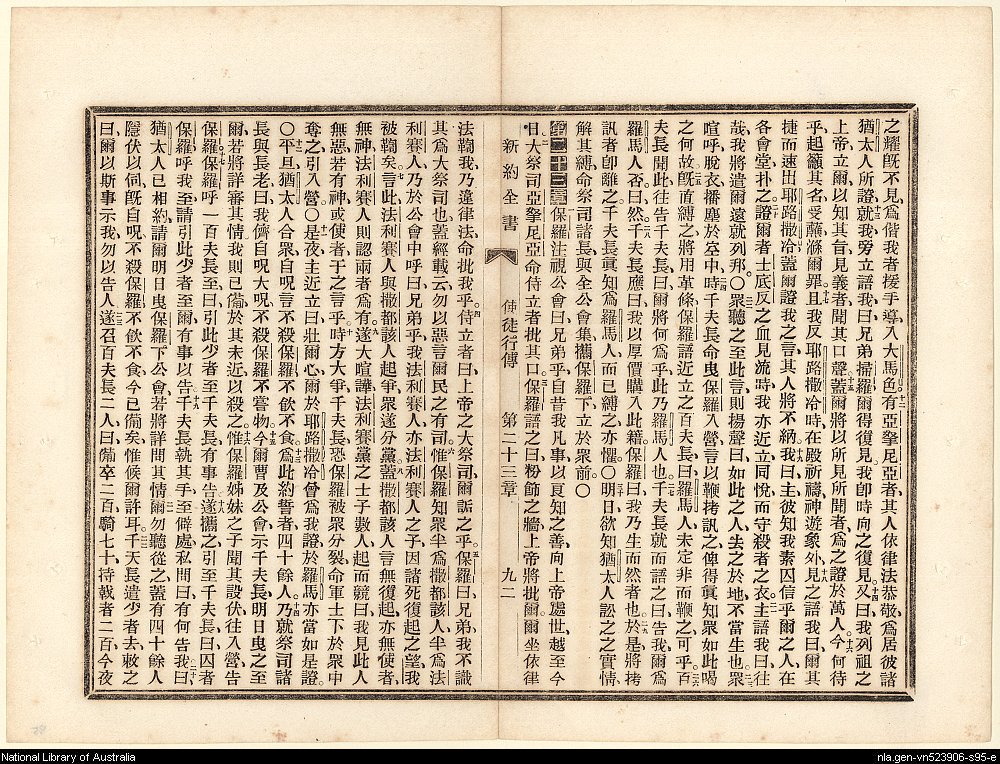 之耀旣不見、爲偕我者援手、導入大馬色、有亞拏尼亞者、其人依律法恭敬、爲居彼諸
猶太人所證、就我旁立、語我曰、兄弟掃羅、爾得復見、我卽時向之復見、又曰、我列祖之
上帝立爾、以知其旨、見義者、聞其口聲、蓋爾將以所見所聞者、爲之證於萬人、今何待
乎、起籲其名、受蘸滌爾罪、且我反耶路撒冷、時在殿祈禱、神遊象外、見之語我曰、爾其
捷而速出耶路撒冷、蓋爾證我之言、其人將不納、我曰、主、彼知我素囚信乎爾之人、在
各會堂扑之、證爾者士底反之血見流時、我亦近立同悅、而守殺者之衣、主語我曰、往
哉、我將遣爾遠就列邦、〇衆聽之、至此言則揚聲曰、如此之人、去之於地、不當生也、衆
喧呼、脫衣播塵於空中時、千夫長命曳保羅入營、言以鞭拷訊之、俾得眞知衆如此喝
之何故、旣直縛之、將用革條、保羅語近立之百夫長曰、羅馬人未定非而鞭之、可乎、百
夫長聞此、往告千夫長曰、爾將何爲乎、此乃羅馬人也、千夫長就而語之曰、告我、爾爲
羅馬人否、曰然、千夫長應曰、我以厚價購入此籍、保羅曰、我乃生而然者也、於是將拷
訊者卽離之、千夫長眞知爲羅馬人、而已縛之、亦懼、〇明日、欲知猶太人訟之之實情、
解其縛、命祭司諸長、與全公會集、攜保羅下、立於衆前、〇
第二十三章保羅注視公會曰、兄弟乎、自昔我凡事以良知之善、向上帝處世、越至今
日、大祭司亞拏尼亞、命侍立者批其口、保羅語之曰、粉飾之牆、上帝將批爾、爾坐依律
新約全書 使徒行傳 第二十三章 九二
法鞫我、乃違律法命批我乎、侍立者曰、上帝之大祭司、爾詬之乎、保羅曰、兄弟、我不識
其爲大祭司也、蓋經載云、勿以惡言爾民之有司、惟保羅知衆半爲撒都該人、半爲法
利賽人、乃於公會中呼曰、兄弟乎、我法利賽人、亦法利賽人之子、因諸死復起之望、我
被鞫矣、言此、法利賽人與撒都該人起爭、衆遂分黨、蓋撒都該人言無復起、亦無使者
無神、法利賽人則認兩者爲有、遂大喧譁、法利賽黨之士子數人、起而競曰、我見此人
無惡、若有神或使者于之言乎、時方大爭、千夫長恐保羅被衆分裂、命軍士下於衆中
奪之、引入營、〇是夜主近立曰、壯爾心、爾於耶路撒冷曾爲我證、於羅馬亦當如是證、
〇平旦猶太人合衆自呪、言不殺保羅、不飲不食、爲此約誓者四十餘人、乃就祭司諸
長與長老曰、我儕自呪大呪、不殺保羅、不嘗物、今爾曹及公會、示千夫長、明日曳之至
爾、若將詳審其情、我則已備於其未近以殺之、惟保羅姊妹之子聞其設伏、往入營告
保羅、保羅呼一百夫長至曰、引此少者至千夫長、有事告、遂攜之引至千夫長曰、囚者
保羅呼我至、請引此少者至爾、有事以告、千夫長執其手、至僻處私問曰、有何告我、曰
猶太人已相約、請爾明日曳保羅下公會、若將詳問其情、爾勿聽從之、蓋有四十餘人
隱伏以伺、旣自呪、不殺保羅、不飲不食、今已備矣、惟候爾許耳、千夫長遣少者去、敕之
曰、爾以斯事示我、勿以告人、遂召百夫長二人曰、備卒二百、騎七十、持戟者二百、今夜
National Library of Australia
nla.gen-vn523906-s95-e